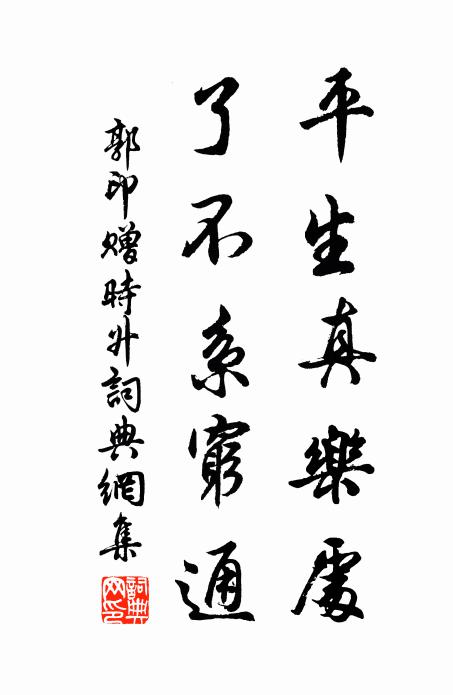 平生真樂處
了不系窮通
郭印贈時升詞典網集
詞典
网印